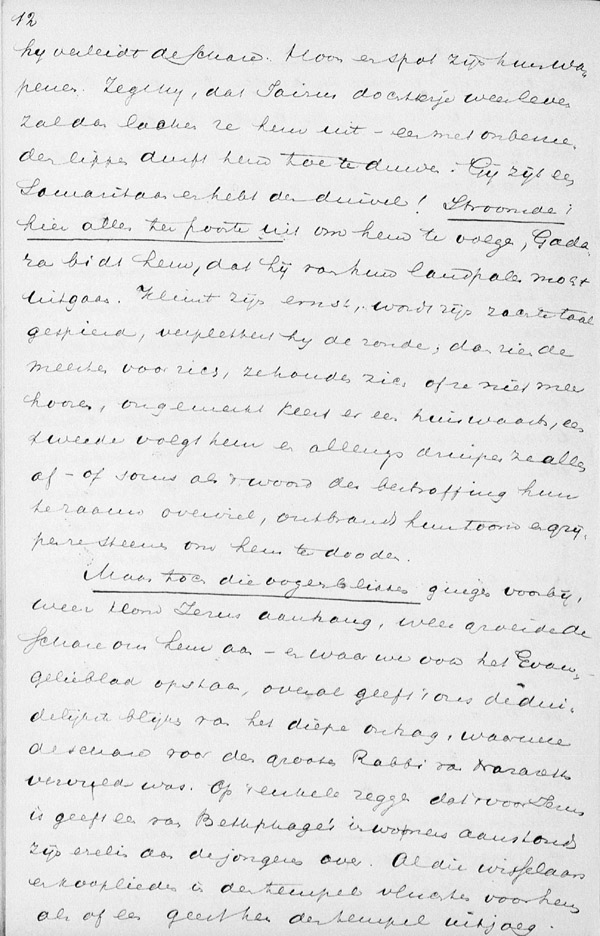 12
hy verleidt de schare. Hoon en spot zijn hun wa-
penen. Zegt hy, dat Jaïrus dochterke weer leven
zal dan lachen ze hem uit – en met onbeschei-
den lippen durft hem toe te duwen. Gij zijt een
Samaritaan en hebt den duivel! Stroomde
hier alles ter poorte uit om hem te volgen, Gada-
ra bidt hem, dat hij van hun landpalen mocht
uitgaan. Klimt zijn ernst, wordt zijn zachte taal
gespierd, verplettert hy de zonde, dan zien de
meesten voor zich, ze houden zich of ze niet meer
hooren, ongemerkt keert er een huiswaarts, een
tweede volgt hem en allengs druipen ze allen
af – of soms als 't woord der bestraffing hun
te raauw overviel, ontbrandt hun toorn en grij-
pen ze steenen om hem te dooden.
Maar toch die oogenblikken gingen voorbij,
weer won Jezus aanhang, weer groeide de
schare om hem aan – en waar we ook het Evan-
gelieblad opslaan, overal geeft 't ons de dui-
delijkste blijken van het diepe ontzag, waarmee
de schare voor den grooten Rabbi van Nazareth
vervuld was. Op 't enkele zeggen dat 't voor Jezus
is geeft een van Bethphage's inwoners aanstonds
zijn ezelin aan de jongeren over. Al die wisselaars
en kooplieden in den tempel vluchten voor hem
als of een geest hen den tempel uitjoeg.